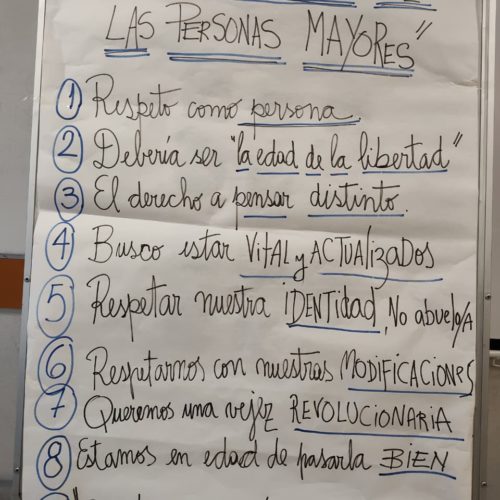 LAS PERSONAS MAYORES"
1 Respeto como persona.
2 Debería ser "la edad de la libertad"
3 El derecho a pensar distinto.
4 Busco estar VITAL y ACTUALIZADOS
5 Respetar nuestra IDENTIDAD, No abuelo/A
6 Respetarnos con nuestras MODIFICACIONES
7 Queremos una vejez REVOLUCIONARIA
8 Estamos en edad de pasarla BIEN